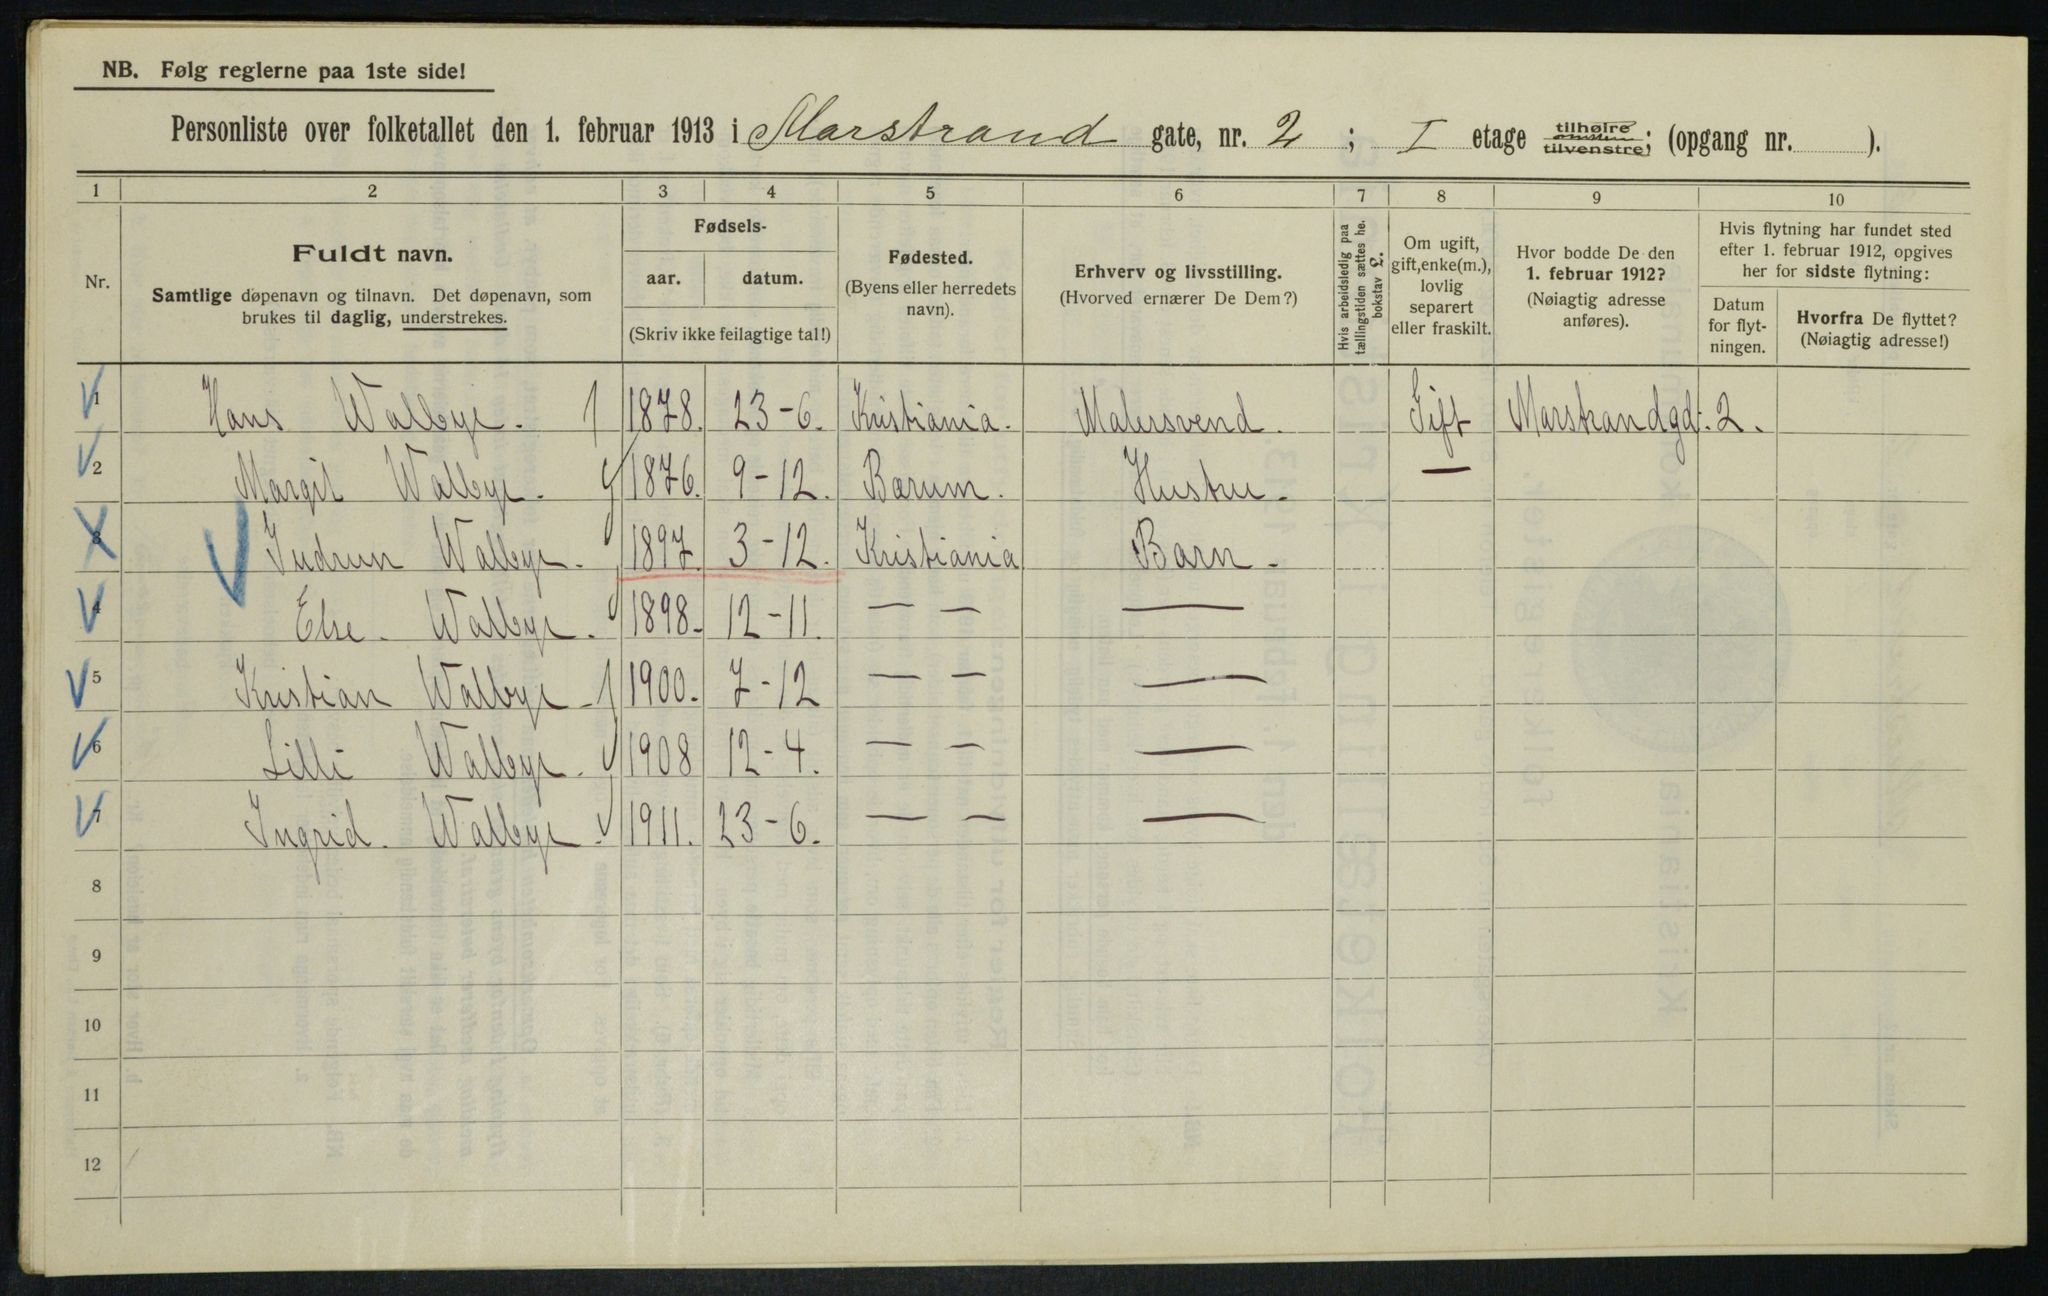 NB. Følg reglerne paa 1ste side!
Personliste over folketallet den 1. februar 1913 i Marstrand gate, nr. 2 ; I etage tilhøire tilvenstre; (opgang nr. ).
1 2 3 4 5 6 7 8 9 10
Nr.
Fuldt navn.
Samtlige døpenavn og tilnavn. Det døpenavn, som
brukes til daglig, understrekes.
Fødsels-
aar. datum.
(Skriv ikke feilagtige tal!)
Fødested.
(Byens eller herredets
navn).
Erhverv og livsstilling.
(Hvorved ernærer De Dem?)
Hvis arbeidsledig paa
tællingstiden sættes he.
bokstav L.
Om ugift,
gift, enke(m.),
lovlig
separert
eller fraskilt.
Hvor bodde De den
1. februar 1912?
(Nøiagtig adresse
anføres).
Hvis flytning har fundet sted
efter 1. februar 1912, opgives
her for sidste flytning:
Datum
for flyt-
ningen.
Hvorfra De flyttet?
(Nøiagtig adresse!)
1 Hans Walbye. 1878. 23-6. Kristiania. Malersvend. Gift Marstrandgd. 2.
2 Margit Walbye. 1876. 9-12. Bærum. Hustru. —
3 Gudrun Walbye. 1897. 3-12. Kristiania Barn.
4 Else. Walbye. 1898. 12-11. — — —
5 Kristian Walbye 1900. 7-12 — — —
6 Lilli Walbye. 1908 12-4. — — —
7 Ingrid. Walbye. 1911. 23-6. — — —
8
9
10
11
12